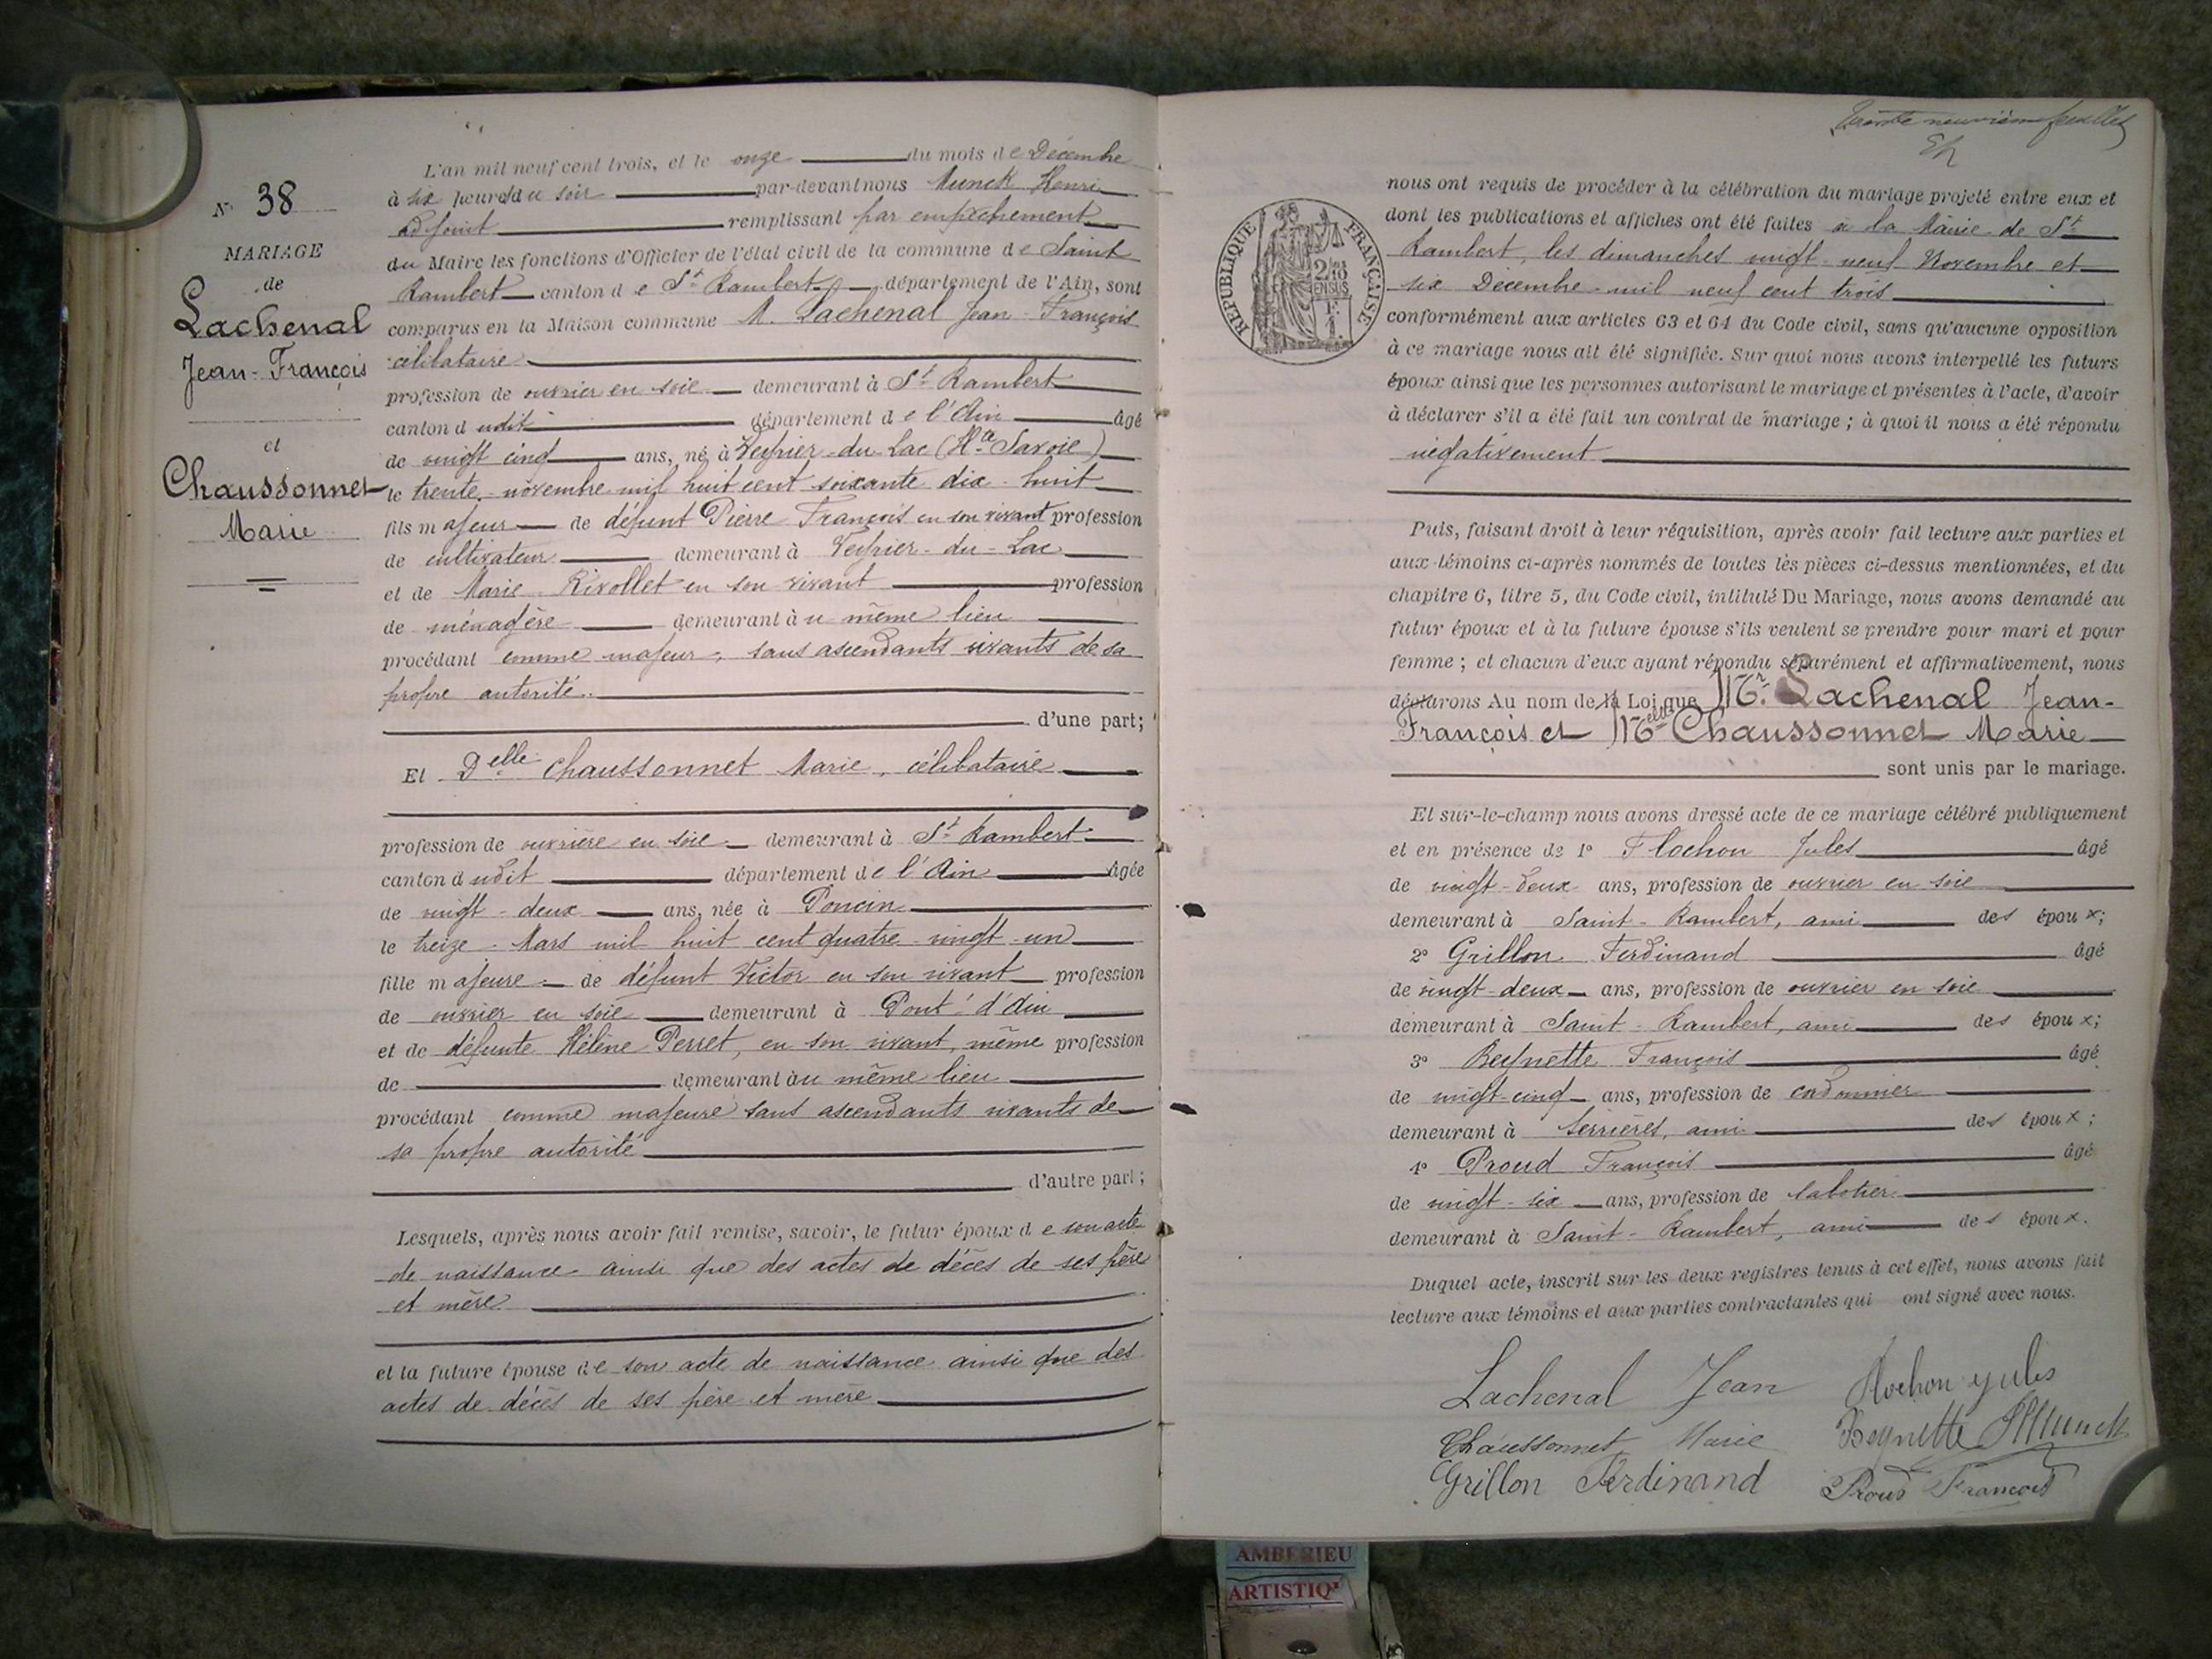 N° 38
MARIAGE
de
Lachenal
Jean-François
et
Chaussonnet
Marie
L'an mil neuf cent trois, et le onze du mois de Décembre
à six heures du soir par-devant nous Munck Henri
adjoint remplissant par empêchement
du Maire les fonctions d'Officier de l'état civil de la commune de Saint
Rambert canton de St Rambert département de l'Ain, sont
comparus en la Maison commune M. Lachenal Jean-François
célibataire
profession de ouvrier en soie demeurant à St Rambert
canton dudit département de l'Ain âgé
de vingt cinq ans, né à Veyrier-du-Lac (Hte Savoie)
le trente novembre mil huit cent soixante dix-huit
fils majeur de défunt Pierre François en son vivant profession
de cultivateur demeurant à Veyrier-du-Lac
et de Marie Rivollet en son vivant profession
de ménagère demeurant au même lieu
procédant comme majeur, sans ascendants vivants de sa
propre autorité.
d'une part;
Et Delle Chaussonnet Marie, célibataire
profession de ouvrière en soie demeurant à St Rambert
canton dudit département de l'Ain âgée
de vingt-deux ans, née à Poncin
le treize Mars mil huit cent quatre-vingt-un
fille majeure de défunt Victor en son vivant profession
de ouvrier en soie demeurant à Pont-d'Ain
et de défunte Hélène Perret, en son vivant, même profession
de demeurant au même lieu
procédant comme majeure sans ascendants vivants de
sa propre autorité
d'autre part;
Lesquels, après nous avoir fait remise, savoir, le futur époux de son acte
de naissance ainsi que des actes de décès de ses père
et mère
et la future épouse de son acte de naissance ainsi que des
actes de décès de ses père et mère
neuvième feuillet
RÉPUBLIQUE FRANÇAISE
nous ont requis de procéder à la célébration du mariage projeté entre eux et
dont les publications et affiches ont été faites à la Mairie de St
Rambert, les dimanches vingt-neuf Novembre et
six Décembre mil neuf cent trois
conformément aux articles 63 et 64 du Code civil, sans qu'aucune opposition
à ce mariage nous ait été signifiée. Sur quoi nous avons interpellé les futurs
époux ainsi que les personnes autorisant le mariage et présentes à l'acte, d'avoir
à déclarer s'il a été fait un contrat de mariage; à quoi il nous a été répondu
négativement
Puis, faisant droit à leur réquisition, après avoir fait lecture aux parties et
aux témoins ci-après nommés de toutes les pièces ci-dessus mentionnées, et du
chapitre 6, titre 5, du Code civil, intitulé Du Mariage, nous avons demandé au
futur époux et à la future épouse s'ils veulent se prendre pour mari et pour
femme; et chacun d'eux ayant répondu séparément et affirmativement, nous
déclarons Au nom de la Loi que Mr. Lachenal Jean-
François et Melle Chaussonnet Marie
sont unis par le mariage.
Et sur-le-champ nous avons dressé acte de ce mariage célébré publiquement
et en présence de 1° Flochon Jules âgé
de vingt-deux ans, profession de ouvrier en soie
demeurant à Saint-Rambert, ami des époux;
2° Grillon Ferdinand âgé
de vingt-deux ans, profession de ouvrier en soie
demeurant à Saint-Rambert, ami des époux;
3° Beynette François âgé
de vingt-cinq ans, profession de cordonnier
demeurant à Serrières, ami des époux;
4° Proud François âgé
de vingt-six ans, profession de sabotier
demeurant à Saint-Rambert, ami des époux.
Duquel acte, inscrit sur les deux registres tenus à cet effet, nous avons fait
lecture aux témoins et aux parties contractantes qui ont signé avec nous.
Lachenal Jean Flochon Jules
Chaussonnet Marie Beynette HMunck
Grillon Ferdinand Proud François
AMBERIEU
ARTISTIQ